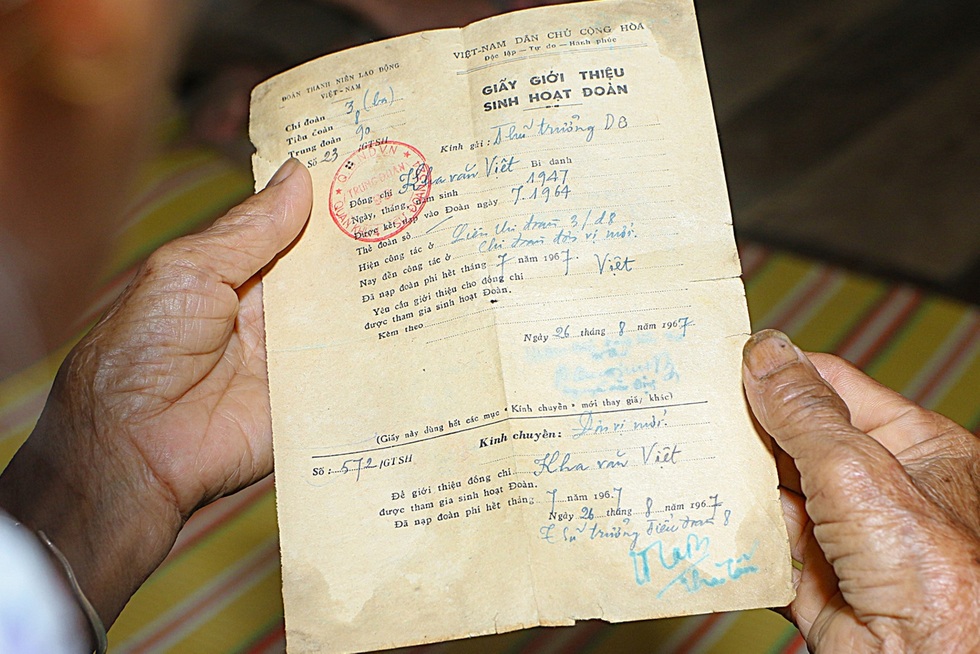 ĐOÀN THANH NIÊN LAO ĐỘNG
VIỆT-NAM
Chi đoàn 3 (ba)
Tiểu đoàn 8
Trung đoàn 90
Số 23 /GTSH
VIỆT-NAM DÂN CHỦ CỘNG HÒA
Độc lập — Tự do — Hạnh phúc
GIẤY GIỚI THIỆU
SINH HOẠT ĐOÀN
Kính gửi: Thủ trưởng D8
Đồng chí Kha văn Việt Bí danh
Ngày, tháng, năm sinh 1947
Được kết nạp vào Đoàn ngày 7.1964
Thẻ đoàn số
Hiện công tác ở Liên chi đoàn 3/d8
Nay đến công tác ở chi đoàn đơn vị mới.
Đã nạp đoàn phí hết tháng 7 năm 1967.
Yêu cầu giới thiệu cho đồng chí Việt
được tham gia sinh hoạt Đoàn.
Kèm theo
Ngày 26 tháng 8 năm 1967
(Giấy này dùng hết các mục • Kính chuyển • mới thay giấy khác)
Kính chuyển: Đơn vị mới.
Số: 572 /GTSH
Để giới thiệu đồng chí Kha văn Việt
được tham gia sinh hoạt Đoàn.
Đã nạp đoàn phí hết tháng 7 năm 1967
Ngày 26 tháng 8 năm 1967
Thủ trưởng tiểu đoàn 8
TRUNG ĐOÀN